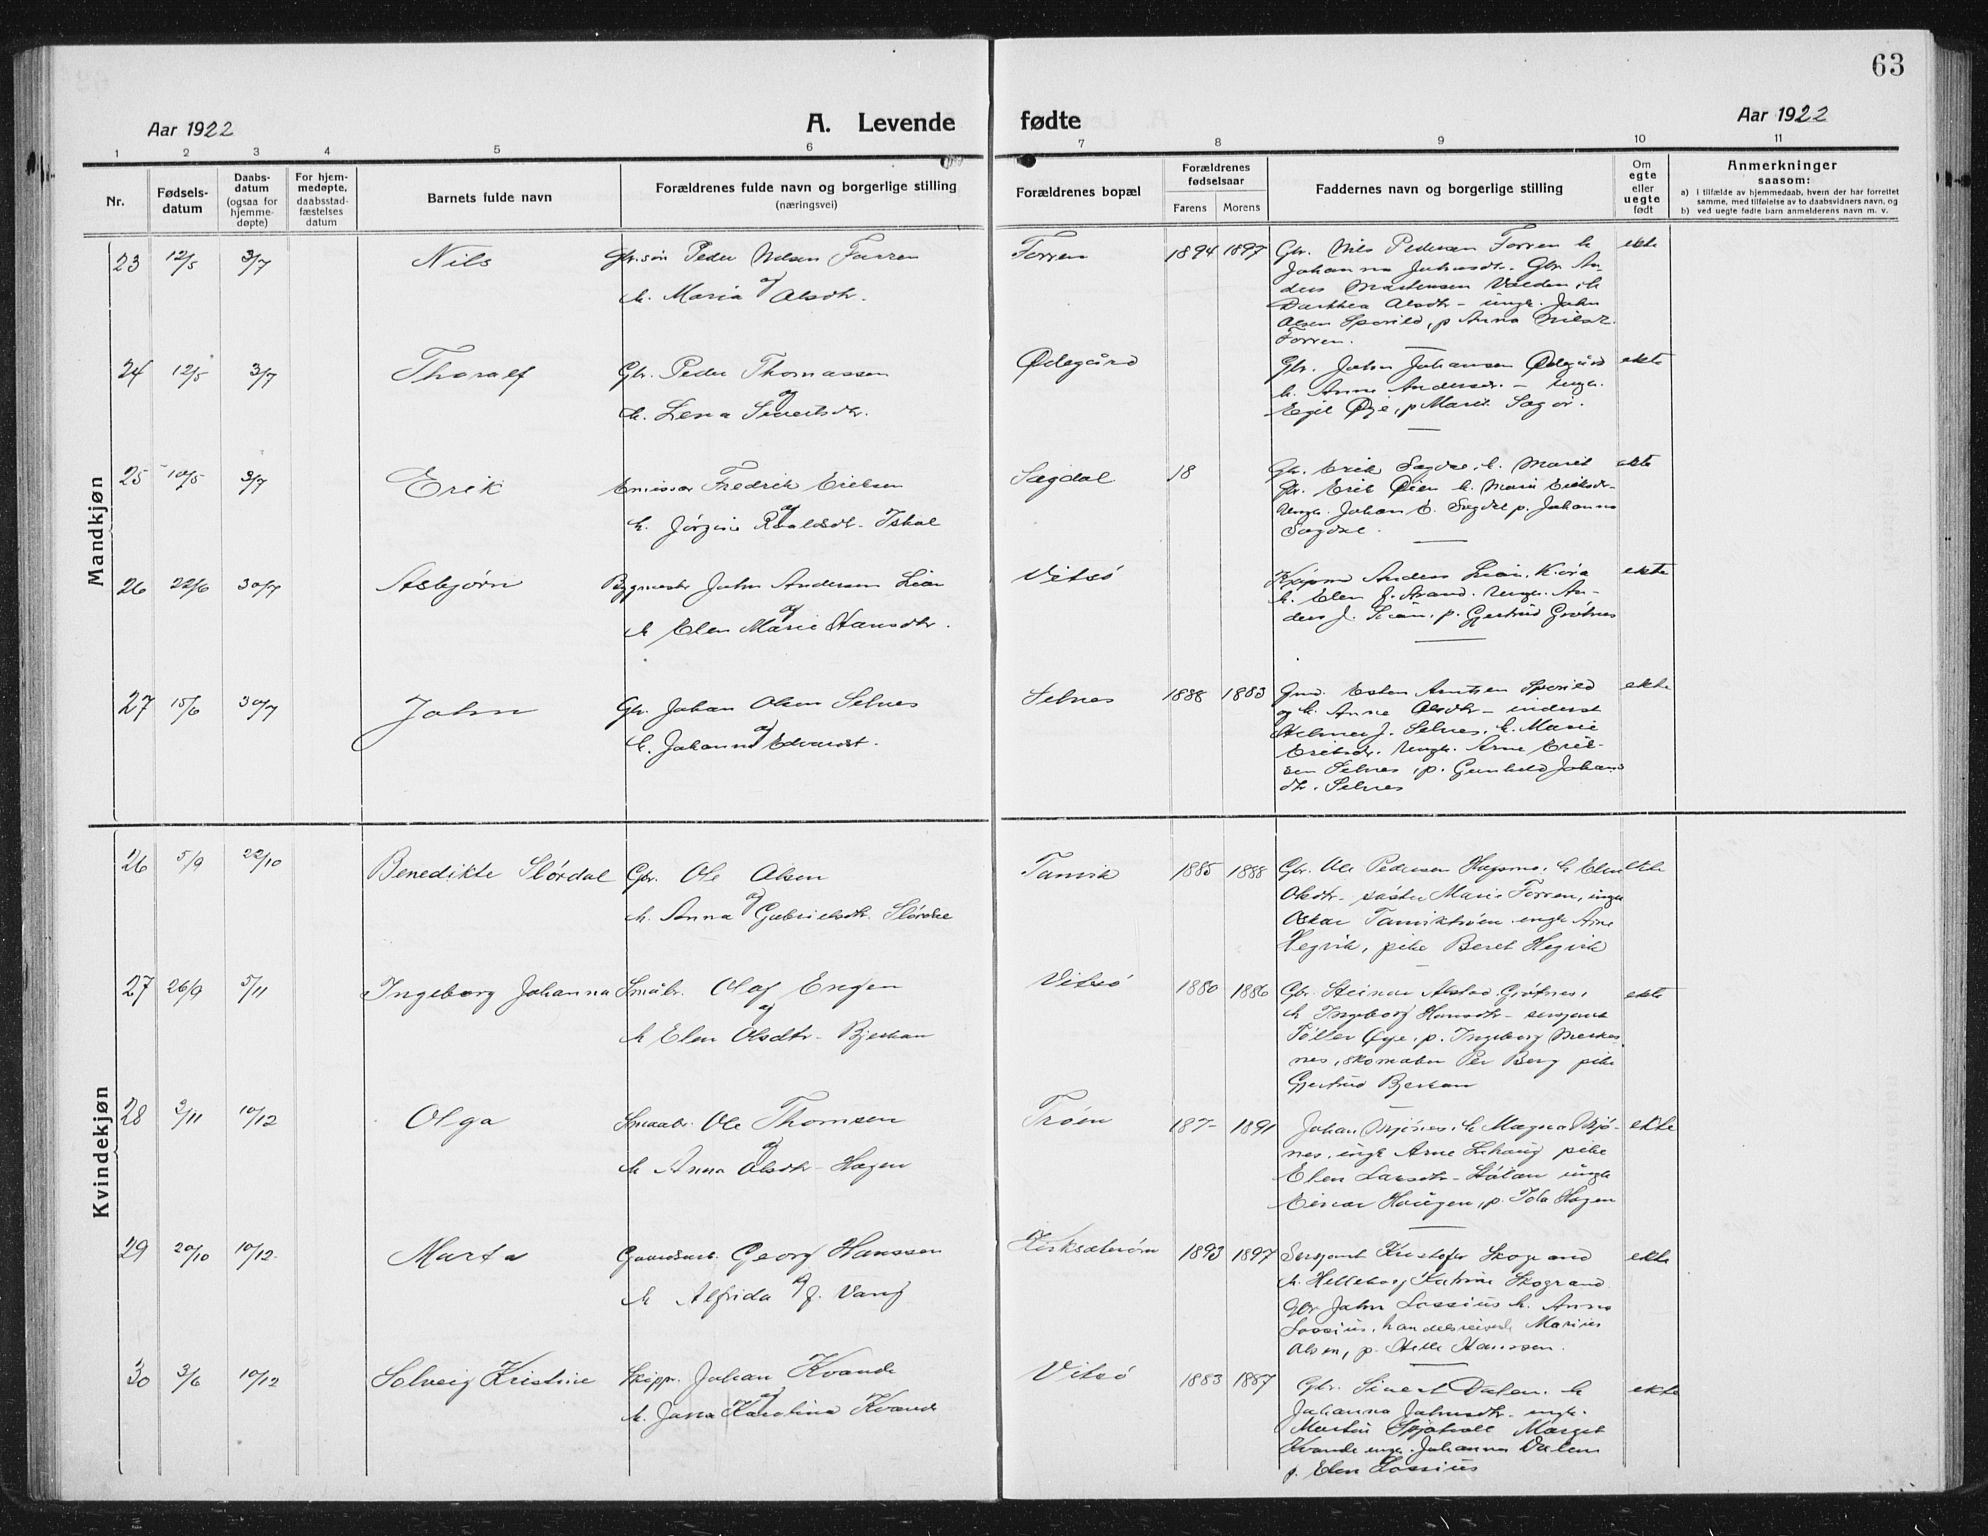 63
Aar 1922
A. Levende fødte
Aar 1922
1 2 3 4 5 6 7 8 9 10 11
Nr.
Fødsels-
datum
Daabs-
datum
(ogsaa for
hjemme-
døpte)
For hjem-
medøpte,
daabsstad-
fæstelses
datum
Barnets fulde navn
Forældrenes fulde navn og borgerlige stilling
(næringsvei)
Forældrenes bopæl
Forældrenes
fødselsaar
Farens Morens
Faddernes navn og borgerlige stilling
Om
egte
eller
uegte
født
Anmerkninger
saasom:
a) I tilfælde av hjemmedaab, hvem der har forrettet
samme, med tilføielse av to daabsvidners navn, og
b) ved uegte fødte barn anmelderens navn m. v.
Mandkjøn
23 12/5 3/7 Nils Gbr.søn Peder Nilsen Forren
og
h. Maria Olsdtr.
Forren 1894 1897 Gbr. Nils Pedersen Forren h. ekte
Johanna Johnsdtr. Gbr. An-
ders Mortensen Valden, h.
Dorthea Olsdtr - ungk. John
Olsen Sporild, p Anna Nilsdr.
Forren.
24 12/5 3/7 Thoralf Gbr. Peder Thomassen
og
h. Lena Sivertsdtr.
Ødegård Gbr. John Johansen Ødegård ekte
h. Anne Andersdr. - ungk.
Egil Øye, p Marit
25 10/5 3/7 Erik Emissær Fredrik Eriksen
og
h. Jörgine
Sagdal 18 Gbr. Erik Sagdal, h. Marit ekte
Gbr. Erik Øien h. Marit Eriksdr-
Ungk. Johan E. Sagdal p. Johanna
Sagdal.
26 22/6 30/7 Asbjörn Bygmestr John Andersen Lian
og
h Elen Marie Hansdtr.
Vitsö Anders Lian, Kirö ekte
h. Elen J. Strand. Ungk. An-
ders J. Lian, p. Gjertrud Grötnes
27 15/6 30/7 John Gbr. Johan Olsen Selnes
og
h. Johanna Edvardst.
Selnes 1888 1883 Gmd. Esten Arntsen Sporild ekte
og h. Anne Olsdtr - inderst
Hilmer J. Selnes, h. Marie
Eriksdr. Ungk. Arne Erik-
sen Selnes, p. Gunhild Johans
dtr. Selnes
Kvindekjøn
26 5/9 22/10 Benedikte Slördal Gbr. Ole Olsen
og
h. Anna Gabrielsdtr. Slördal
Tanvik 1885 1888 Gbr. Ole Pedersen Hagsmo, h Elen ekte
Olsdtr. søster Marie Forren, ungk
Oskar Tanviktrøen ungk Arne
Hegvik, pike Beret Hegvik
27 26/9 5/11 Ingeborg Johanna Småbr. Olaf Engen
og
h Elen Olsdtr. Bjerkan
Vitsö 1880 1886 Gbr. Steinar Alstad Grötnes, ekte
h Ingeborg Hansdtr - sersjant
Töller Øye, p. Ingeborg Merkes-
nes, skomaker Per Berg pike
Gjertrud Bjerkan
28 2/11 10/12 Olga Smaabr. Ole Thomsen
og
h Anna Olsdtr. Hagen
Trøen 187- 1891 Johan Mjönes, h Magna Mjö- ekte
nes, ungk Arne Lihaug pike
Elen Larsdtr - Stölan ungk
Einar Haugen, p. Ida Hagen
29 20/10 10/12 Marta Gaardsarb. Georg Hanssen
og
h Alfrida J. Vang
Kirksæterörn 1893 1897 Sersjant Kristofer Skogrand ekte
h. Helleborg Katrine Skogrand
Gbr John Lossius h. Anna
Lossius, handelsreisende Marius
Olsen, p. Hanssen.
30 3/6 10/12 Solveig Kristine Skippr. Johan Kvande
og
h. Karolina Kvande
Vitsö 1883 1887 Gbr. Sivert Dalen, h ekte
Johanna Johnsdtr - ungk.
Martin Sjøhall Marget
Kvande ungk. Johannes Dalen
p. Elen Lossius